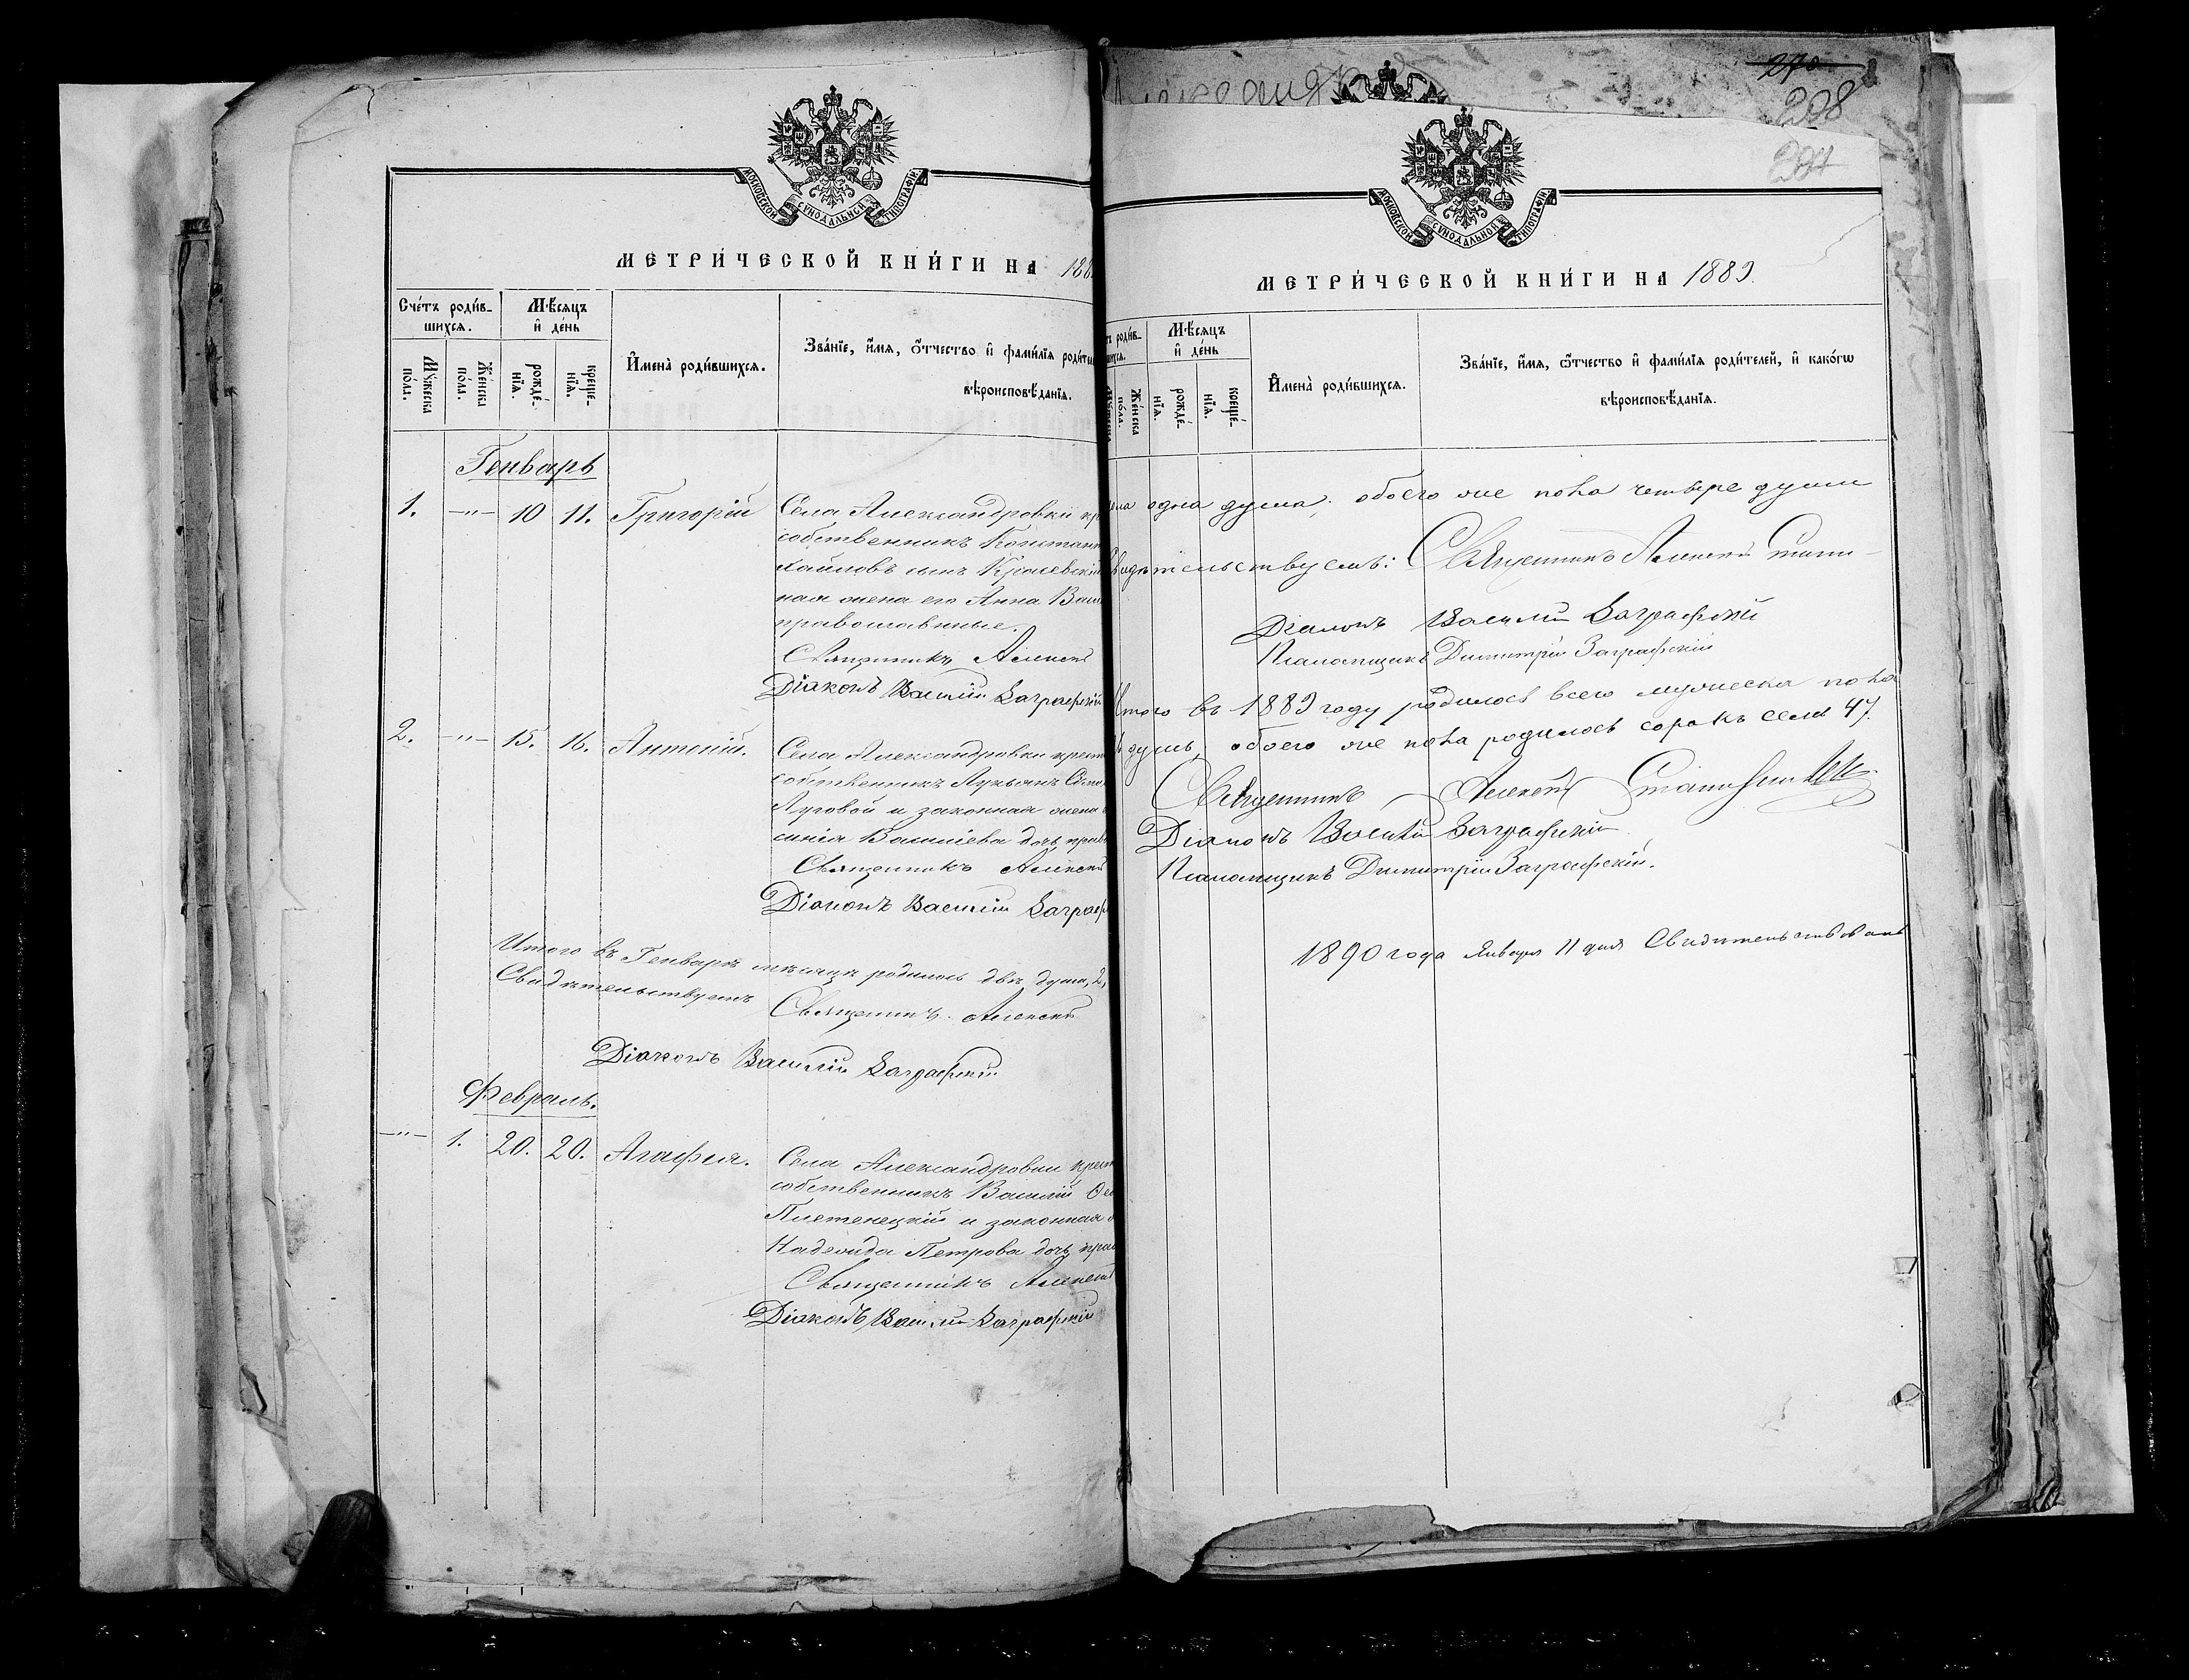 МОСКОВСКОЙ СѴНОДАЛЬНОЙ ТИПОГРАФІИ
МЕТРИ́ЧЕСКОЙ КНИ́ГИ НА 188
Сче́тъ роди́в-
шихся.
Мѣ́сяцъ
и҆ де́нь
Мꙋ́жеска по́ла.
Же́нска по́ла.
рожде́-нїѧ.
креще́-нїѧ.
И҆мена̀ роди́вшихся.
Зва́нїе, и҆́мѧ, ѻ҆́тчество и҆ фами́лїѧ роди́те
вѣроисповѣ́данїѧ.
Генварь
1. —"— 10 11. Григорій Села Александровки кр
собственникъ Констант
хайловъ сынъ
ная жена его Анна Васи
православные.
Священникъ Алексѣй
Діаконъ Василій Заграфскій
2. —"— 15. 16. Антоній. Села Александровки крест
собственникъ Лукьянъ
Луговой и законная жена
Василіева дочь прав
Священникъ Алексѣй
Діаконъ Василій Заграф
Итого въ Генварѣ мѣсяцѣ родилось двѣ души, 2,
Свидѣтельствуемъ
Священникъ Алексѣй
Діаконъ Василій Заграфскій
Февраль.
—"— 1. 20. 20. Агафія. Села Александровки крест
собственникъ Василій
Плетенецкій и законная
Надежда Петрова дочь прав
Священникъ Алексѣй
Діаконъ Василій Заграфскій
270
298
297
МОСКОВСКОЙ СѴНОДАЛЬНОЙ ТИПОГРАФІИ
МЕТРИ́ЧЕСКОЙ КНИ́ГИ НА 1889.
тъ роди́в-
шихся.
Мѣ́сяцъ
и҆ де́нь
Же́нска по́ла.
рожде́-нїѧ.
креще́-нїѧ.
И҆мена̀ роди́вшихся.
Зва́нїе, и҆́мѧ, ѻ҆́тчество и҆ фами́лїѧ роди́телей, и҆ како́гѡ
вѣроисповѣ́данїѧ.
одна душа; обоего же пола четыре души
Свидѣтельствуемъ: Священникъ Алексѣй
Діаконъ Василій Заграфскій
Псаломщикъ Димитрій Заграфскій
Итого въ 1889 году родилось всего мужеска пола
душъ, обоего же пола родилось сорокъ семь 47.
Священникъ Алексѣй
Діаконъ Василій Заграфскій
Псаломщикъ Димитрій Заграфскій.
1890 года Января 11 дня Свидѣтельствовалъ